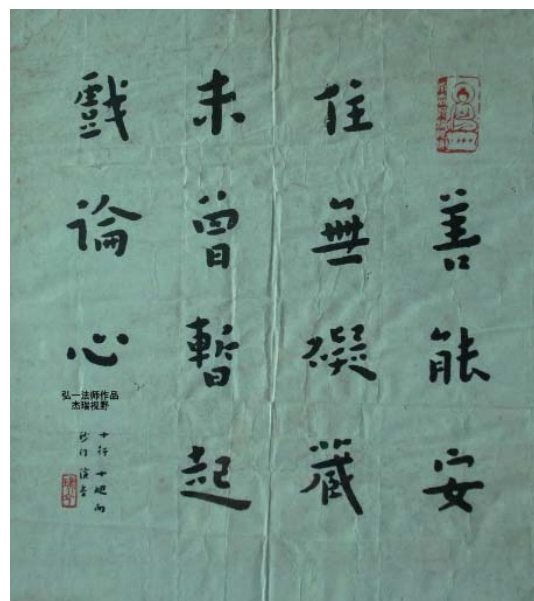 善能安
住無礙藏
未曾暫起
戲論心
弘一法师作品
杰瑞视野
十行十迴向
演音